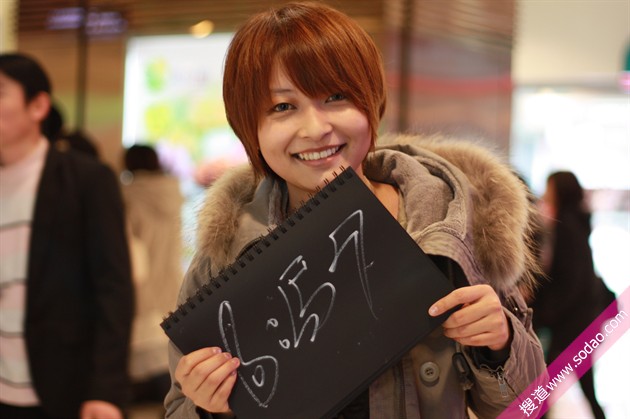 6:57
搜道 www.sodao.com